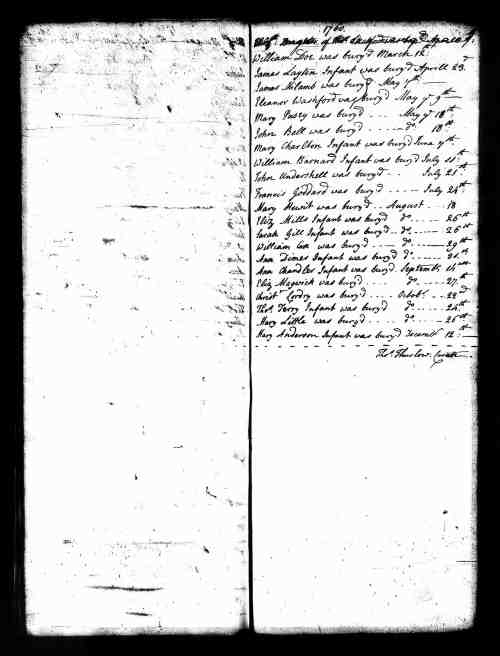 1760
was bury'd
William Doe was bury'd March 12th
James Layton Infant was bury'd Aprill 23d
James was bury'd May 7th
Eleanor Washford was bury'd May ye 9th
Mary Pusty was bury'd May ye 18th
John Bell was bury'd Do 18th
Mary Charlton Infant was bury'd June 7th
William Barnard Infant was bury'd July 11th
John Undershell was bury'd July 21st
Francis Goddard was bury'd July 24th
Mary Hewit was bury'd August 18
Eliz Mills Infant was bury'd Do 26th
Sarah Gill Infant was bury'd Do 26th
William Cox was bury'd Do 29th
Ann Dimes Infant was bury'd Do 31st
Ann Chandler Infant was bury'd Septembr 14th
Eliz Magwick was bury'd Do 27th
Christr Cordry was bury'd Octobr 22d
Thos Terry Infant was bury'd Do 24th
Mary Little was bury'd Do 26th
Mary Anderson Infant was bury'd Decembr 12th
Thos Thurlow Curate